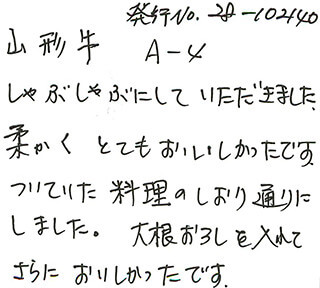 発行No. 28-102140
山形牛　A-4
しゃぶしゃぶにして いただきました。
柔かく とてもおいしかったです。
ついていた 料理のしおり通りに
しました。 大根おろしを入れて
さらに おいしかったです。